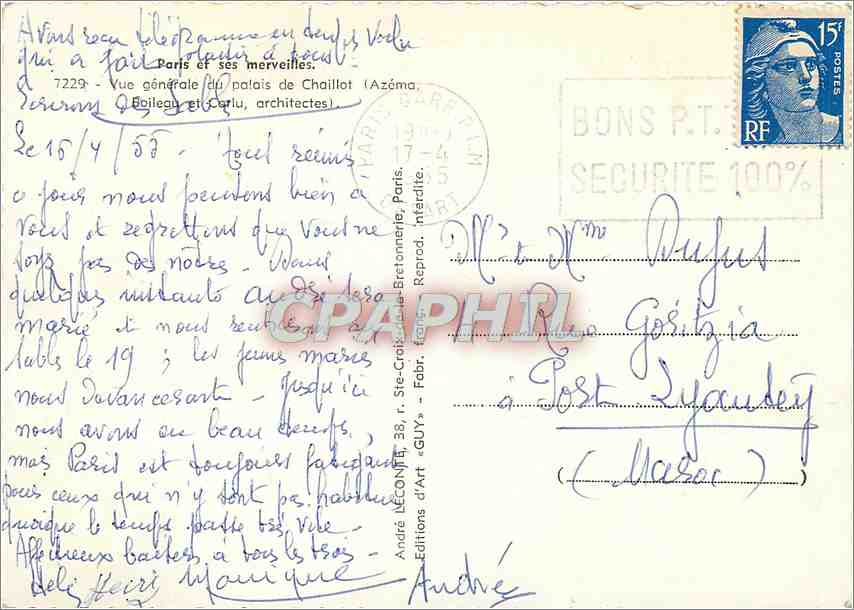 Avons reçu télégramme en temps voulu
qui a fait plaisir à tous
Paris et ses merveilles.
7229 - Vue générale du palais de Chaillot (Azéma,
Boileau et Carlu, architectes).
Le 16/4/55 - tous réunis
nous pensons bien à
vous et regrettons que vous ne
soyez pas des nôtres - Dans
quelques instants André sera
marié et nous
table le 19 ; les jeunes mariés
nous devancerons - Jusqu'ici
nous avons eu beau temps,
mais Paris est toujours fatigant
pour ceux qui n'y sont pas habitués
quoique le temps passe très vite -
Affectueux baisers à tous les trois -
Henri Monique André
André LECONTE, 38, r. Ste-Croix-de-la-Bretonnerie, Paris.
Editions d'Art «GUY» - Fabr. franç. Reprod. interdite.
PARIS GARE P.L.M
17-4
BONS P.T.T
SECURITE 100%
15F
POSTES
RF
Mr & Mme Dufus
Goritzia
à Port Lyautey
(Maroc)
CPAPHIL